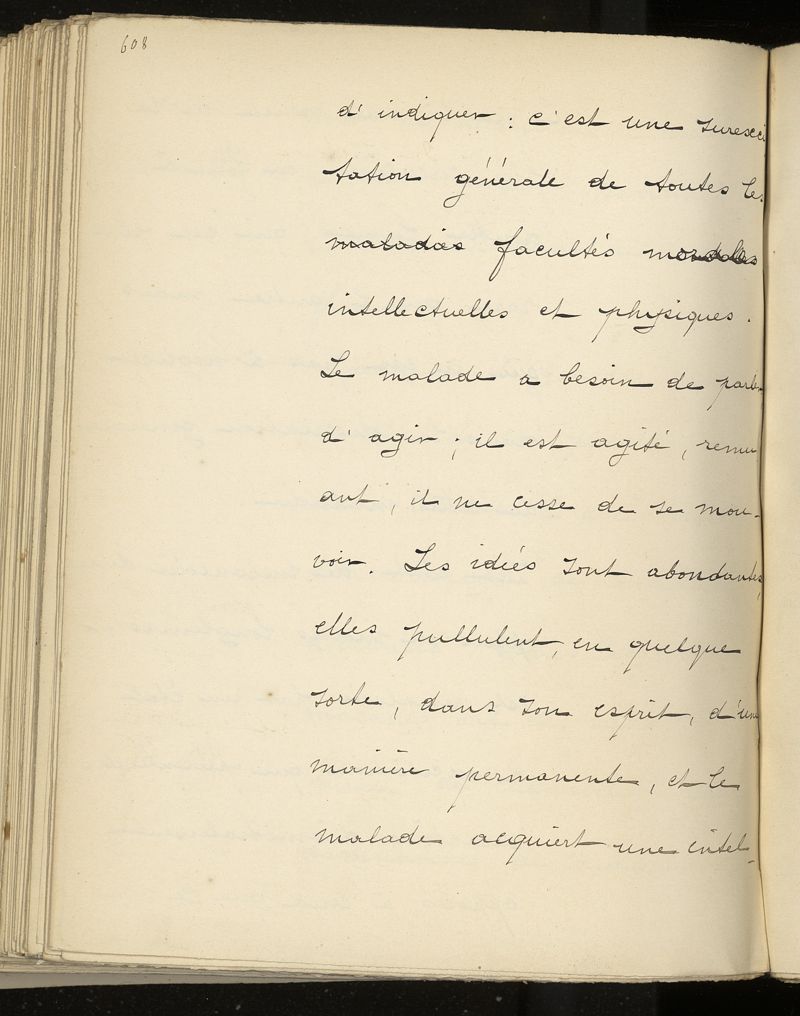 608
d'indiquer : c'est une surexci
tation générale de toutes les
maladies facultés morales
intellectuelles et physiques.
Le malade a besoin de parler
d'agir ; il est agité, remu
ant, il ne cesse de se mou-
voir. Les idiés sont abondantes,
elles pullulent, en quelque
sorte, dans son esprit, d'une
manière permanente, et le
malade acquiert une intel-